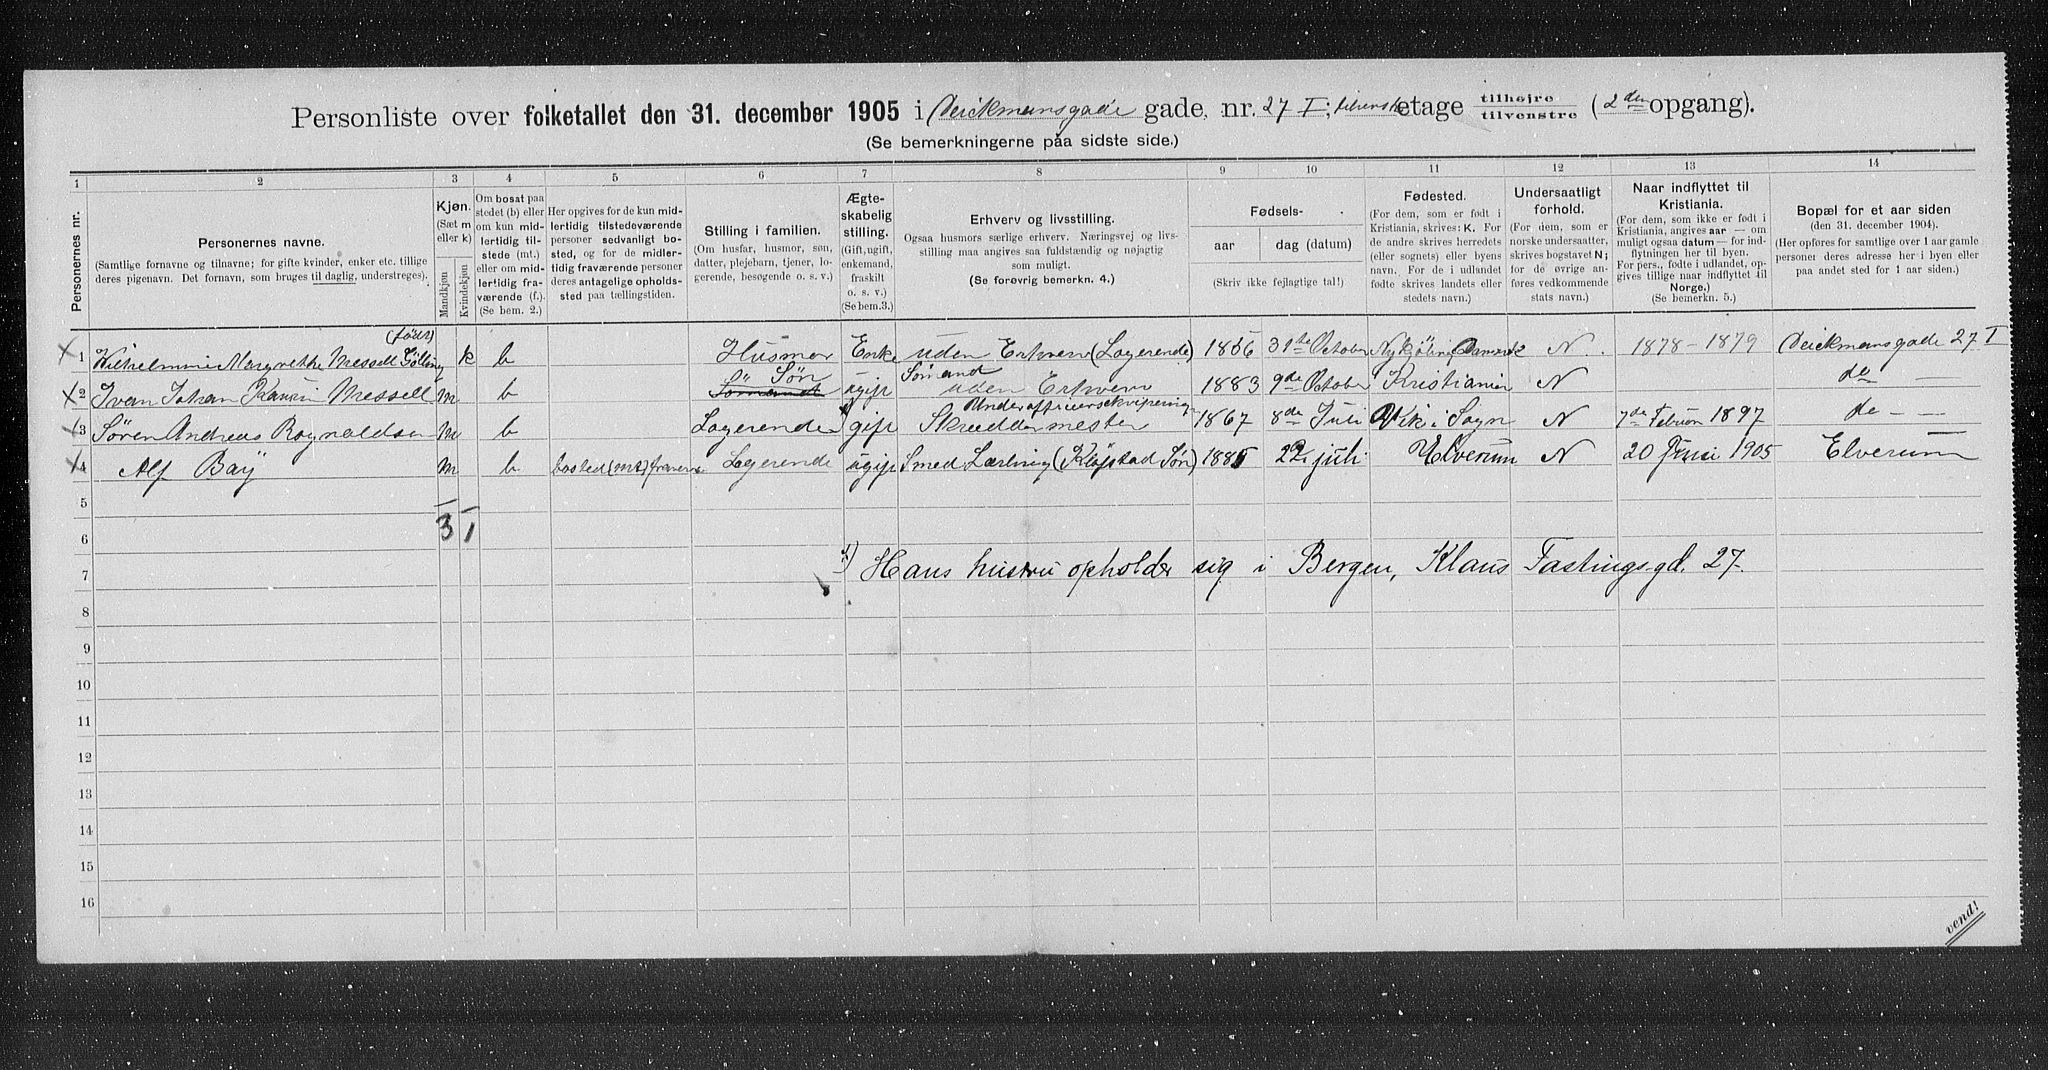 Personliste over folketallet den 31. december 1905 i Deichmansgade gade, nr. 27 I; tilvenstre etage tilhøjre tilvenstre (2den opgang).
(Se bemerkningerne paa sidste side.)
1 2 3 4 5 6 7 8 9 10 11 12 13 14
Personernes nr.
Personernes navne.
(Samtlige fornavne og tilnavne; for gifte kvinder, enker etc. tillige deres pigenavn. Det fornavn, som bruges til daglig, understreges).
Kjøn.
(Sæt m eller k)
Mandkjøn
Kvindekjøn
Om bosat paa stedet (b) eller om kun midlertidig tilstede (mt.) eller om midlertidig fraværende (f.). (Se bem. 2.)
Her opgives for de kun midlertidig tilstedeværende personer sedvanligt bosted, og for de midlertidig fraværende personer deres antagelige opholdssted paa tællingstiden.
Stilling i familien.
(Om husfar, husmor, søn, datter, plejebarn, tjener, logerende, besøgende o. s. v.)
Ægteskabelig stilling.
(Gift, ugift, enkemand, fraskilt o. s. v.) (Se bem. 3.)
Erhverv og livsstilling.
Ogsaa husmors særlige erhverv. Næringsvej og livsstilling maa angives saa fuldstændig og nøjagtig som muligt.
(Se forøvrig bemerkn. 4.)
Fødsels-
aar dag (datum)
(Skriv ikke fejlagtige tal!)
Fødested.
(For dem, som er født i Kristiania, skrives: K. For de andre skrives herredets (eller sognets) eller byens navn. For de i udlandet fødte skrives landets eller stedets navn.)
Undersaatligt forhold.
(For dem, som er norske undersaatter, skrives bogstavet N; for de øvrige anføres vedkommende stats navn.)
Naar indflyttet til Kristiania.
(For dem, som ikke er født i Kristiania, angives aar — om muligt ogsaa datum — for indflytningen her til byen. For pers., fødte i udlandet, opgives tillige naar indflyttet til Norge.)
(Se bemerkn. 5.)
Bopæl for et aar siden
(den 31. december 1904).
(Her opføres for samtlige over 1 aar gamle personer deres adresse her i byen eller paa andet sted for 1 aar siden.)
(født)
1 Wilhelmine Margrethe Messell Gölling k b Husmor Enke uden Erhverv (Logerende) 1856 31te October Nykjöbing Danmark N. 1878-1879 Deichmansgade 27 I
Søn Sömand
2 Ivan Johan Messell m b Sömand ugift uden Erhverv 1883 9de October Kristiania N do —
Underofficersekvipering
3 Sören Andreas Rognaldsen m b Logerende gift Skreddermester 1867 8de Juli Vik i Sogn N 7de Februar 1897 do — —
4 Alf Bay m b bosted (mt) fravær Logerende ugift Smed Lærling (Kløfstad Søn) 1885 22 juli Elverum N 20 Juni 1905 Elverum
5
3 1
6
1) Hans hustru opholder sig i Bergen, Klaus Fastingsgd. 27.
7
8
9
10
11
12
13
14
15
16
vend!